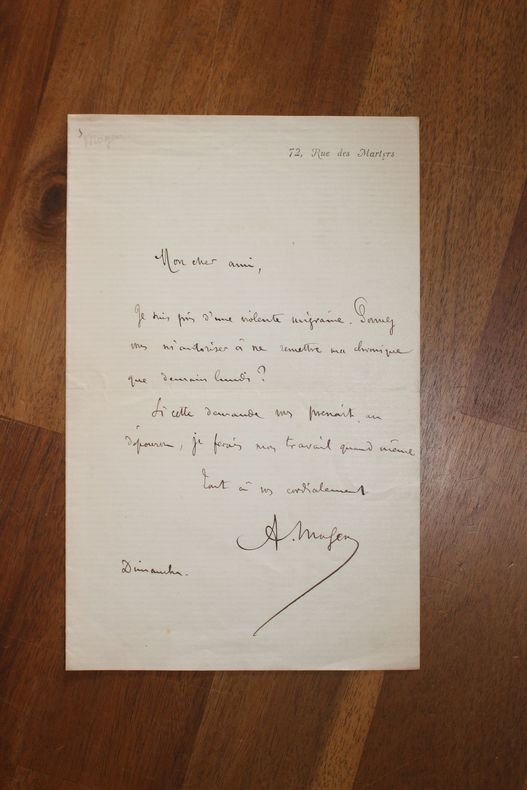 Mayer
72, Rue des Martyrs
Mon cher ami,
Je suis pris d'une violente migraine. Pouvez
vous m'autoriser à ne remettre ma chronique
que demain lundi ?
Si cette demande vous prenait au
dépourvu, je ferais mon travail quand même
Tout à vous cordialement
A. Mayer
Dimanche.